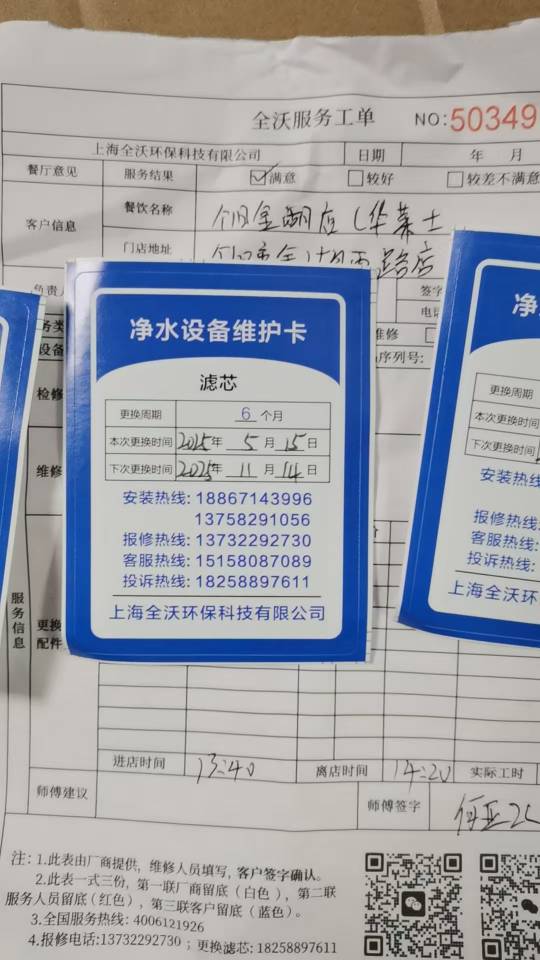 全沃服务工单 NO:50349
上海全沃环保科技有限公司 日期 年 月
餐厅意见 服务结果 ☑满意 □较好 □较差不满意
客户信息 餐饮名称 华莱士
门店地址 路店
签字
维修
序列号:
检修
维修
净水设备维护卡
滤芯
更换周期 6 个月
本次更换时间 2025年 5月 15日
下次更换时间 2025年 11月 14日
安装热线: 18867143996
13758291056
报修热线: 13732292730
客服热线: 15158087089
投诉热线: 18258897611
上海全沃环保科技有限公司
净水
更换周期
本次更换时间
下次更换时间
安装热线:
报修热线:
客服热线:
投诉热线:
上海全沃环
服务信息
更换
配件
进店时间 13:40 离店时间 14:20 实际工时
师傅建议 师傅签字
注: 1.此表由厂商提供, 维修人员填写, 客户签字确认。
2.此表一式三份, 第一联厂商留底 (白色), 第二联
服务人员留底(红色), 第三联客户留底 (蓝色)。
3.全国服务热线: 4006121926
4.报修电话:13732292730 ; 更换滤芯: 18258897611